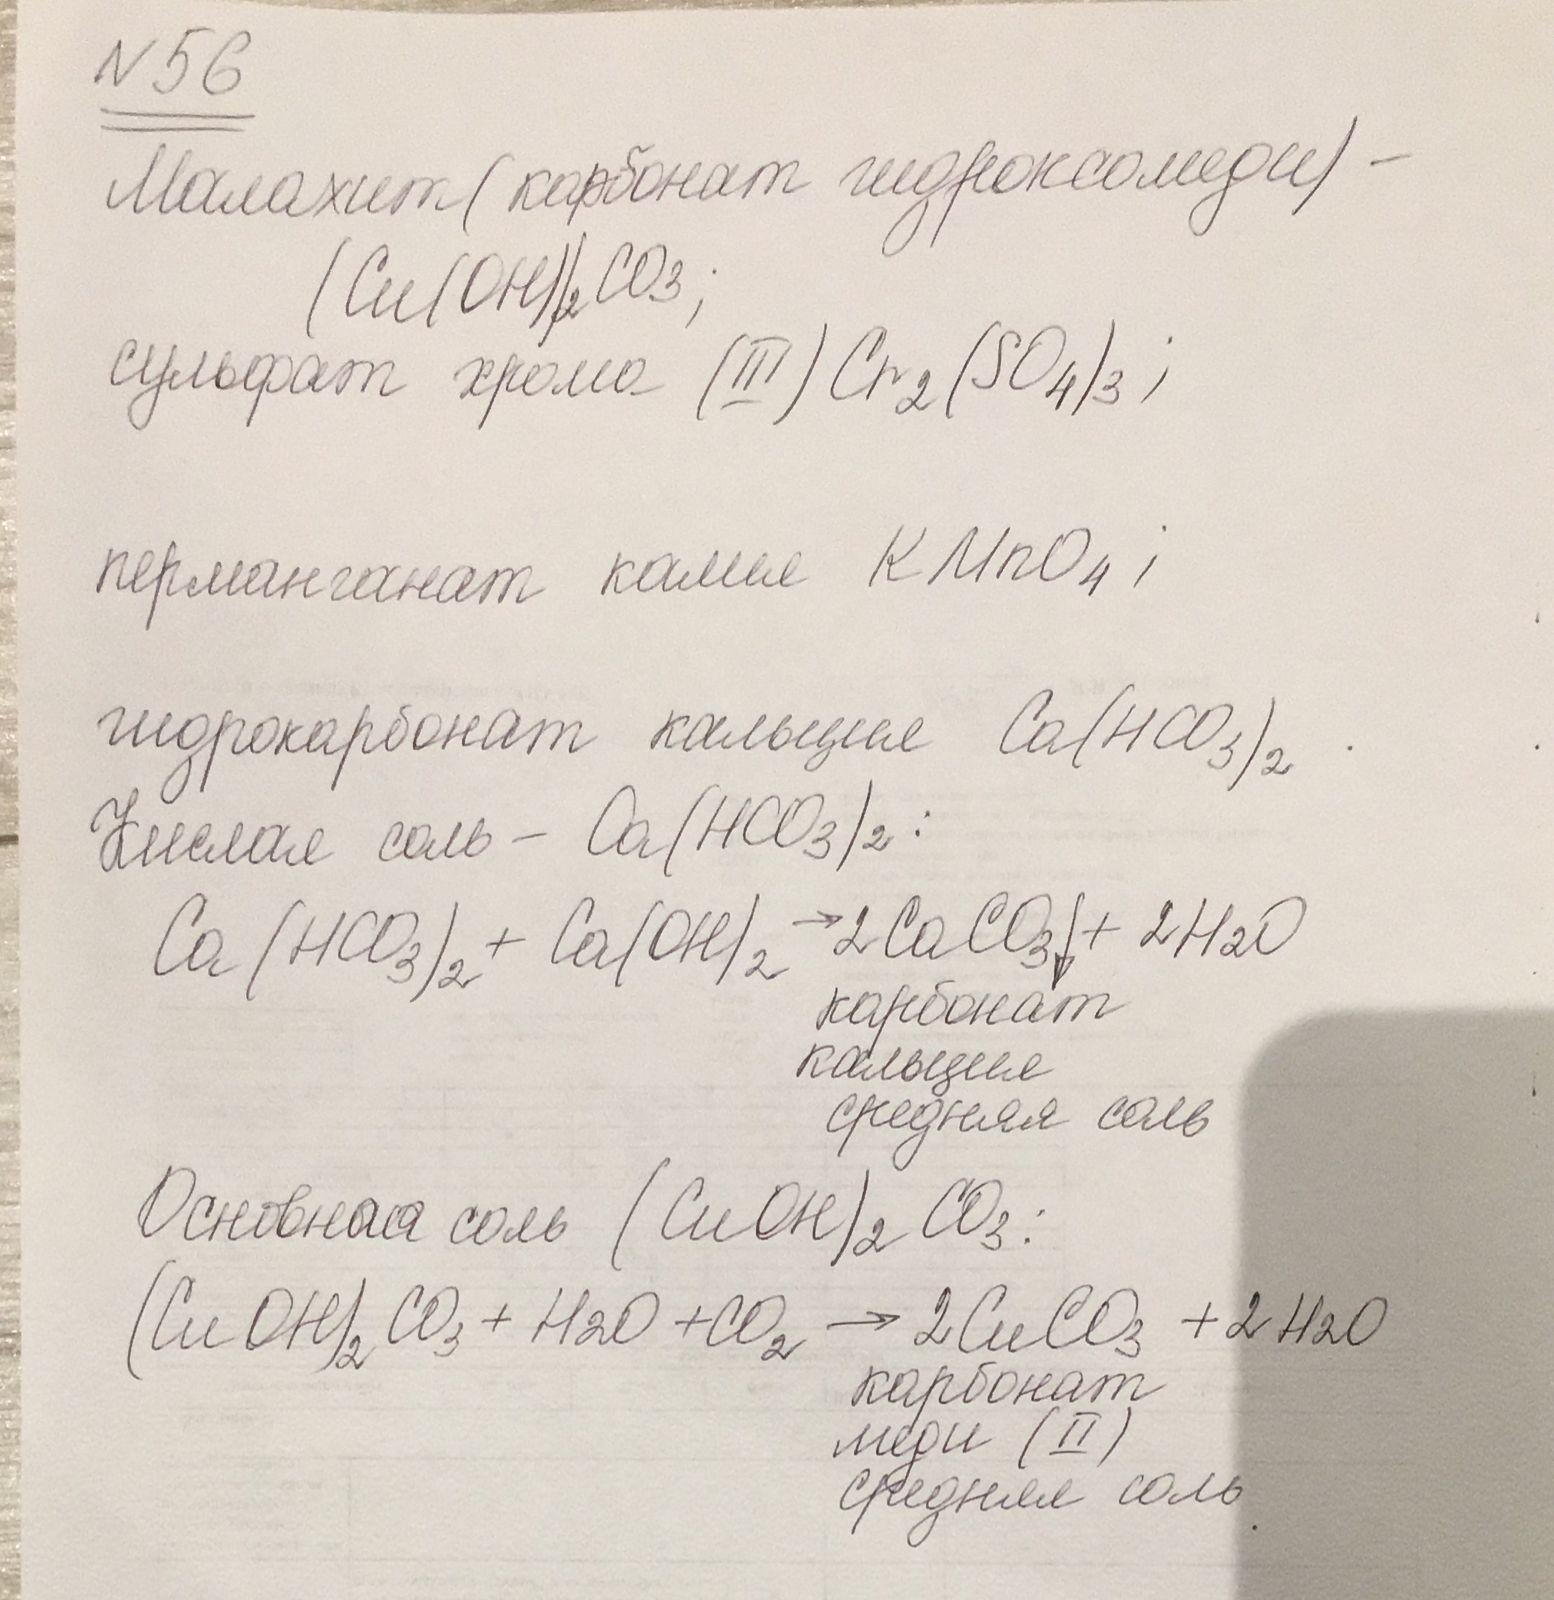 N 56
Малахит (карбонат гидроксомеди) –
(Cu(OH))₂CO₃;
сульфат хрома (III) Cr₂(SO₄)₃;
перманганат калия KMnO₄;
гидрокарбонат кальция Ca(HCO₃)₂.
Кислая соль – Ca(HCO₃)₂:
Ca(HCO₃)₂ + Ca(OH)₂ → 2CaCO₃↓ + 2H₂O
карбонат
кальция
средняя соль
Основная соль (CuOH)₂CO₃:
(CuOH)₂CO₃ + H₂O + CO₂ → 2CuCO₃ + 2H₂O
карбонат
меди (II)
средняя соль.